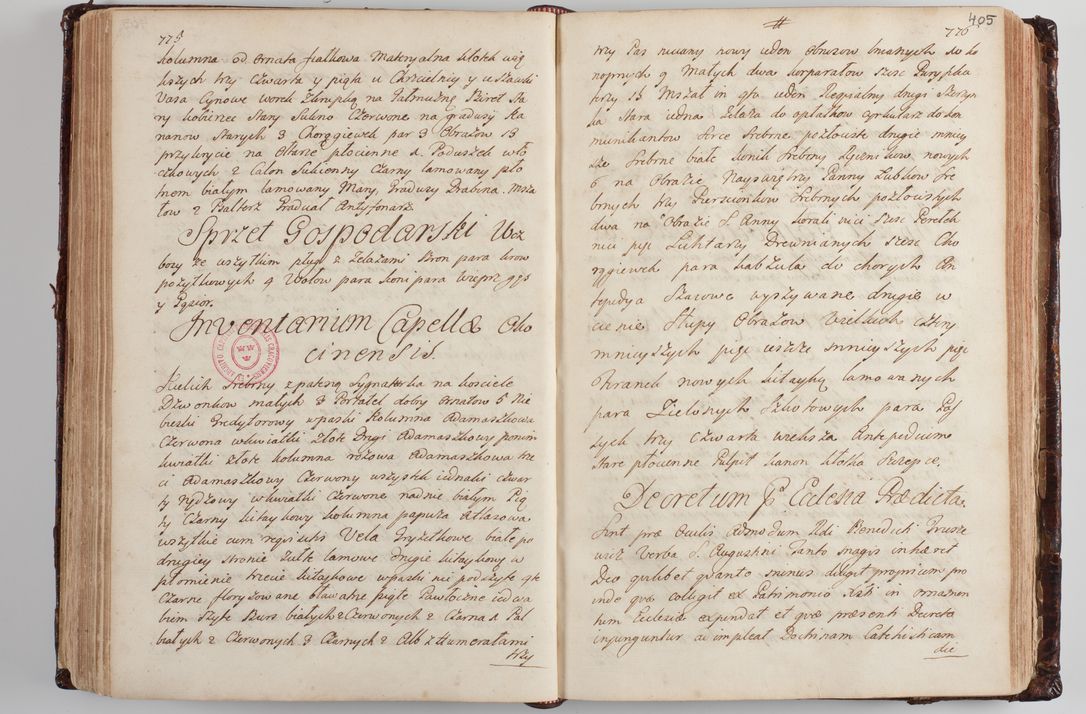 775
kolumna od Ornata fiałkowa Materyalna Złotek wię
kszych trzy Czwarta y piąta u Chrzcielnicy y u Stawki
Vasa Cynowe worek Zamykłą na Jałmużnę Biret Sta
ry kobierzec Stary Sukno Czerwone na gradusy Ka
nanow Starych 3 Chorągiewek par 3 Obrazow 13
przykrycie na Ołtarze płocienne 1. Poduszek włó
czkowych 2 Całon Sukienny Czarny lamowany pło
tnem białym lamowany Mary, Gradusy Drabina. Msza
łow 2 Psałterz Graduał Antyfonarz
Sprzęt Gospodarski Wcz
bory ze wszytkim pług z Zelazami Bron para krow
pożytkowych 4 Wołow para koni para Wieprz gęś
y Gąsior.
Inventarium Capellæ Cho
cinensis.
Kielich Srebrny z pateną Sygnaturka na kościele
Dzwonkow małych 3 Portatel dobry Ornatow 5 Nie
bieski Gredytorowy w paski kolumna Adamaszkowa
Czerwona w kwiatki Złote Drugi Adamaszkowy ponsow
kwiatki Złote kolumna rożowa Adamaszkowa trze
ci Adamaszkowy Czerwony wszystek iednaki czwar
ty rydzowy w kwiatki Czerwone na dnie białym Pią
ty Czarny kitaykowy kolumna papuza Atłasowa
wszytkie cum requisitis Vela Gryzetkowe białe po
drugiey stronie żułte lamowe drugie kitaykowy w
płomienie trzecie kitaykowe w paski nie podszyte 4te
Czarne florysowane oławane piąte Pawłoczne iedwa
biem Szyte Burs białych 2 Czerwonych 2 Czarna 1 Pal
białych 2 Czerwonych 3 Czarnych 2 Alb z Humerałami
trzy
405
776
trzy Pas niciany nowy ieden Obrusow lnianych do do
nopnych 9 Małych dwa korporałow Sześć Puryfika
trzy 13 Mszał in 4to ieden Requialny drugi Agen
da Stara iedna Żelaza do opłatkow cyrkularz do kom
munikantow Arce Srebrne pozłociste drugie mniey
sze Srebrne białe konik Srebrny Lyczn ikow nowych
6 na Obrazie Nayswiętszy Panny Tablikow Sre
brnych trzy Pierscionkow Srebrnych pozłocistych
dwa na Obrazie S. Anny korali nici Sześć Perełek
nici pięć Lichtarzy Drewnianych sześć Cho
rągiewek para kapżula do chorych An
tepedya Szarowe wyszywane drugie w
cienie słupy Obrazow Wielkich cztery
mnieyszych pięć ieszcze mnieyszych pięć
firanek nowych kitayką lamowanych
para Zielonych Szkotowych para Pas
zych trzy czwarta większa Antepedium
Stare płocienne Pulpit kanon kłotka Przepice,
Decretum pro Ecclesia Prædicta.
Sint præ Oculis Admodum Rdi Benedicti Prusie
wicz Verba S. Augustini Tanto magis inhæret
Deo quilibet quanto minus diligit proprium pro
inde quæ colligit ex Patrimonio Xsti in ornamen
tum Ecclesiæ expendat et quæ præsenti Decreto
injunguntur adimpleat Doctrinam Catechisticam
die